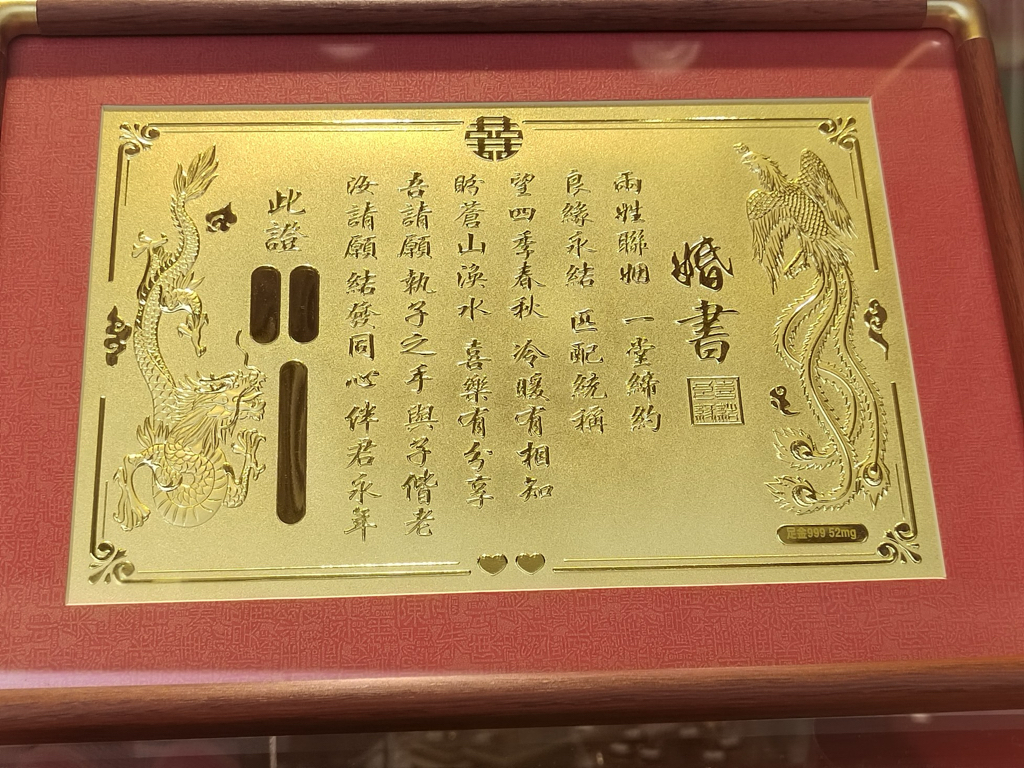 囍
婚書
兩姓聯姻 一堂締約
良緣永結 匹配統稱
望四季春秋 冷暖有相知
盼蒼山渙水 喜樂有分享
吾請願執子之手與子偕老
汝請願結發同心伴君永年
此證
足金999 52mg